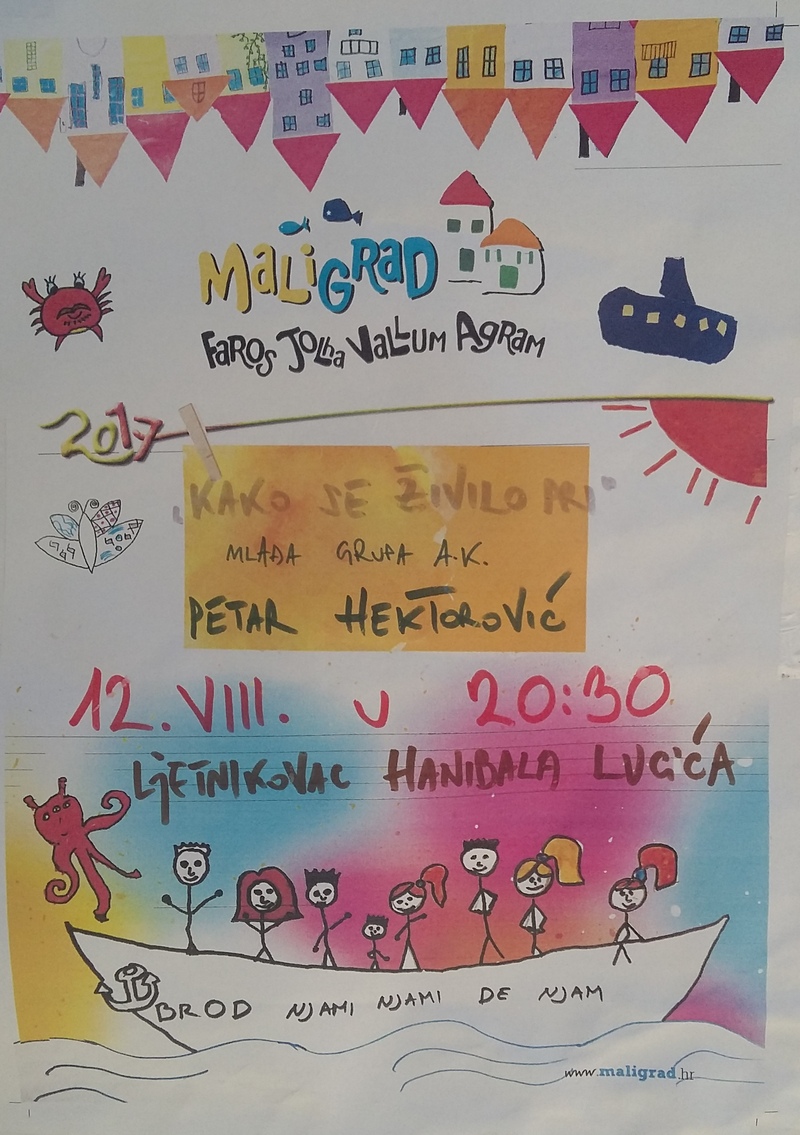 MALiGRAD
FAROS JOLhA VALLUM AGRAM
2017
„KAKO SE ŽIVILO PRI“
MLAĐA GRUPA A.K.
PETAR HEKTOROVIĆ
12. VIII. U 20:30
LJETNIKOVAC HANIBALA LUCIĆA
JB
BROD NJAMI NJAMI DE NJAM
www.maligrad.hr